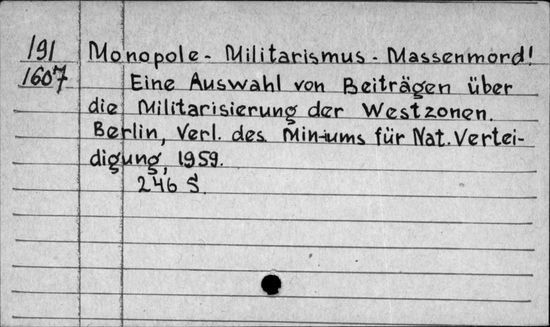 191
1607
Monopole - Militarismus - Massenmord!
Eine Auswahl von Beiträgen über
die Militarisierung der Westzonen.
Berlin, Verl. des Min-iums für Nat. Vertei-
digung, 1959.
246 S.